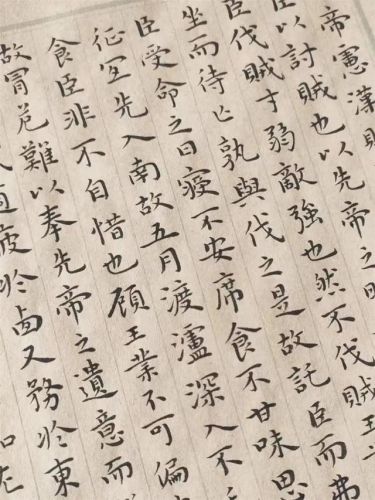 帝慮漢賊
臣以討賊也以先帝之
臣伐賊才弱敵強也然不伐賊王
坐而待亡孰與伐之是故託臣而弗
臣受命之日寢不安席食不甘味思
征宜先入南故五月渡瀘深入不
食臣非不自惜也顧王業不可偏
故冒危難以奉先帝之遺意而
適疲於西又務於東